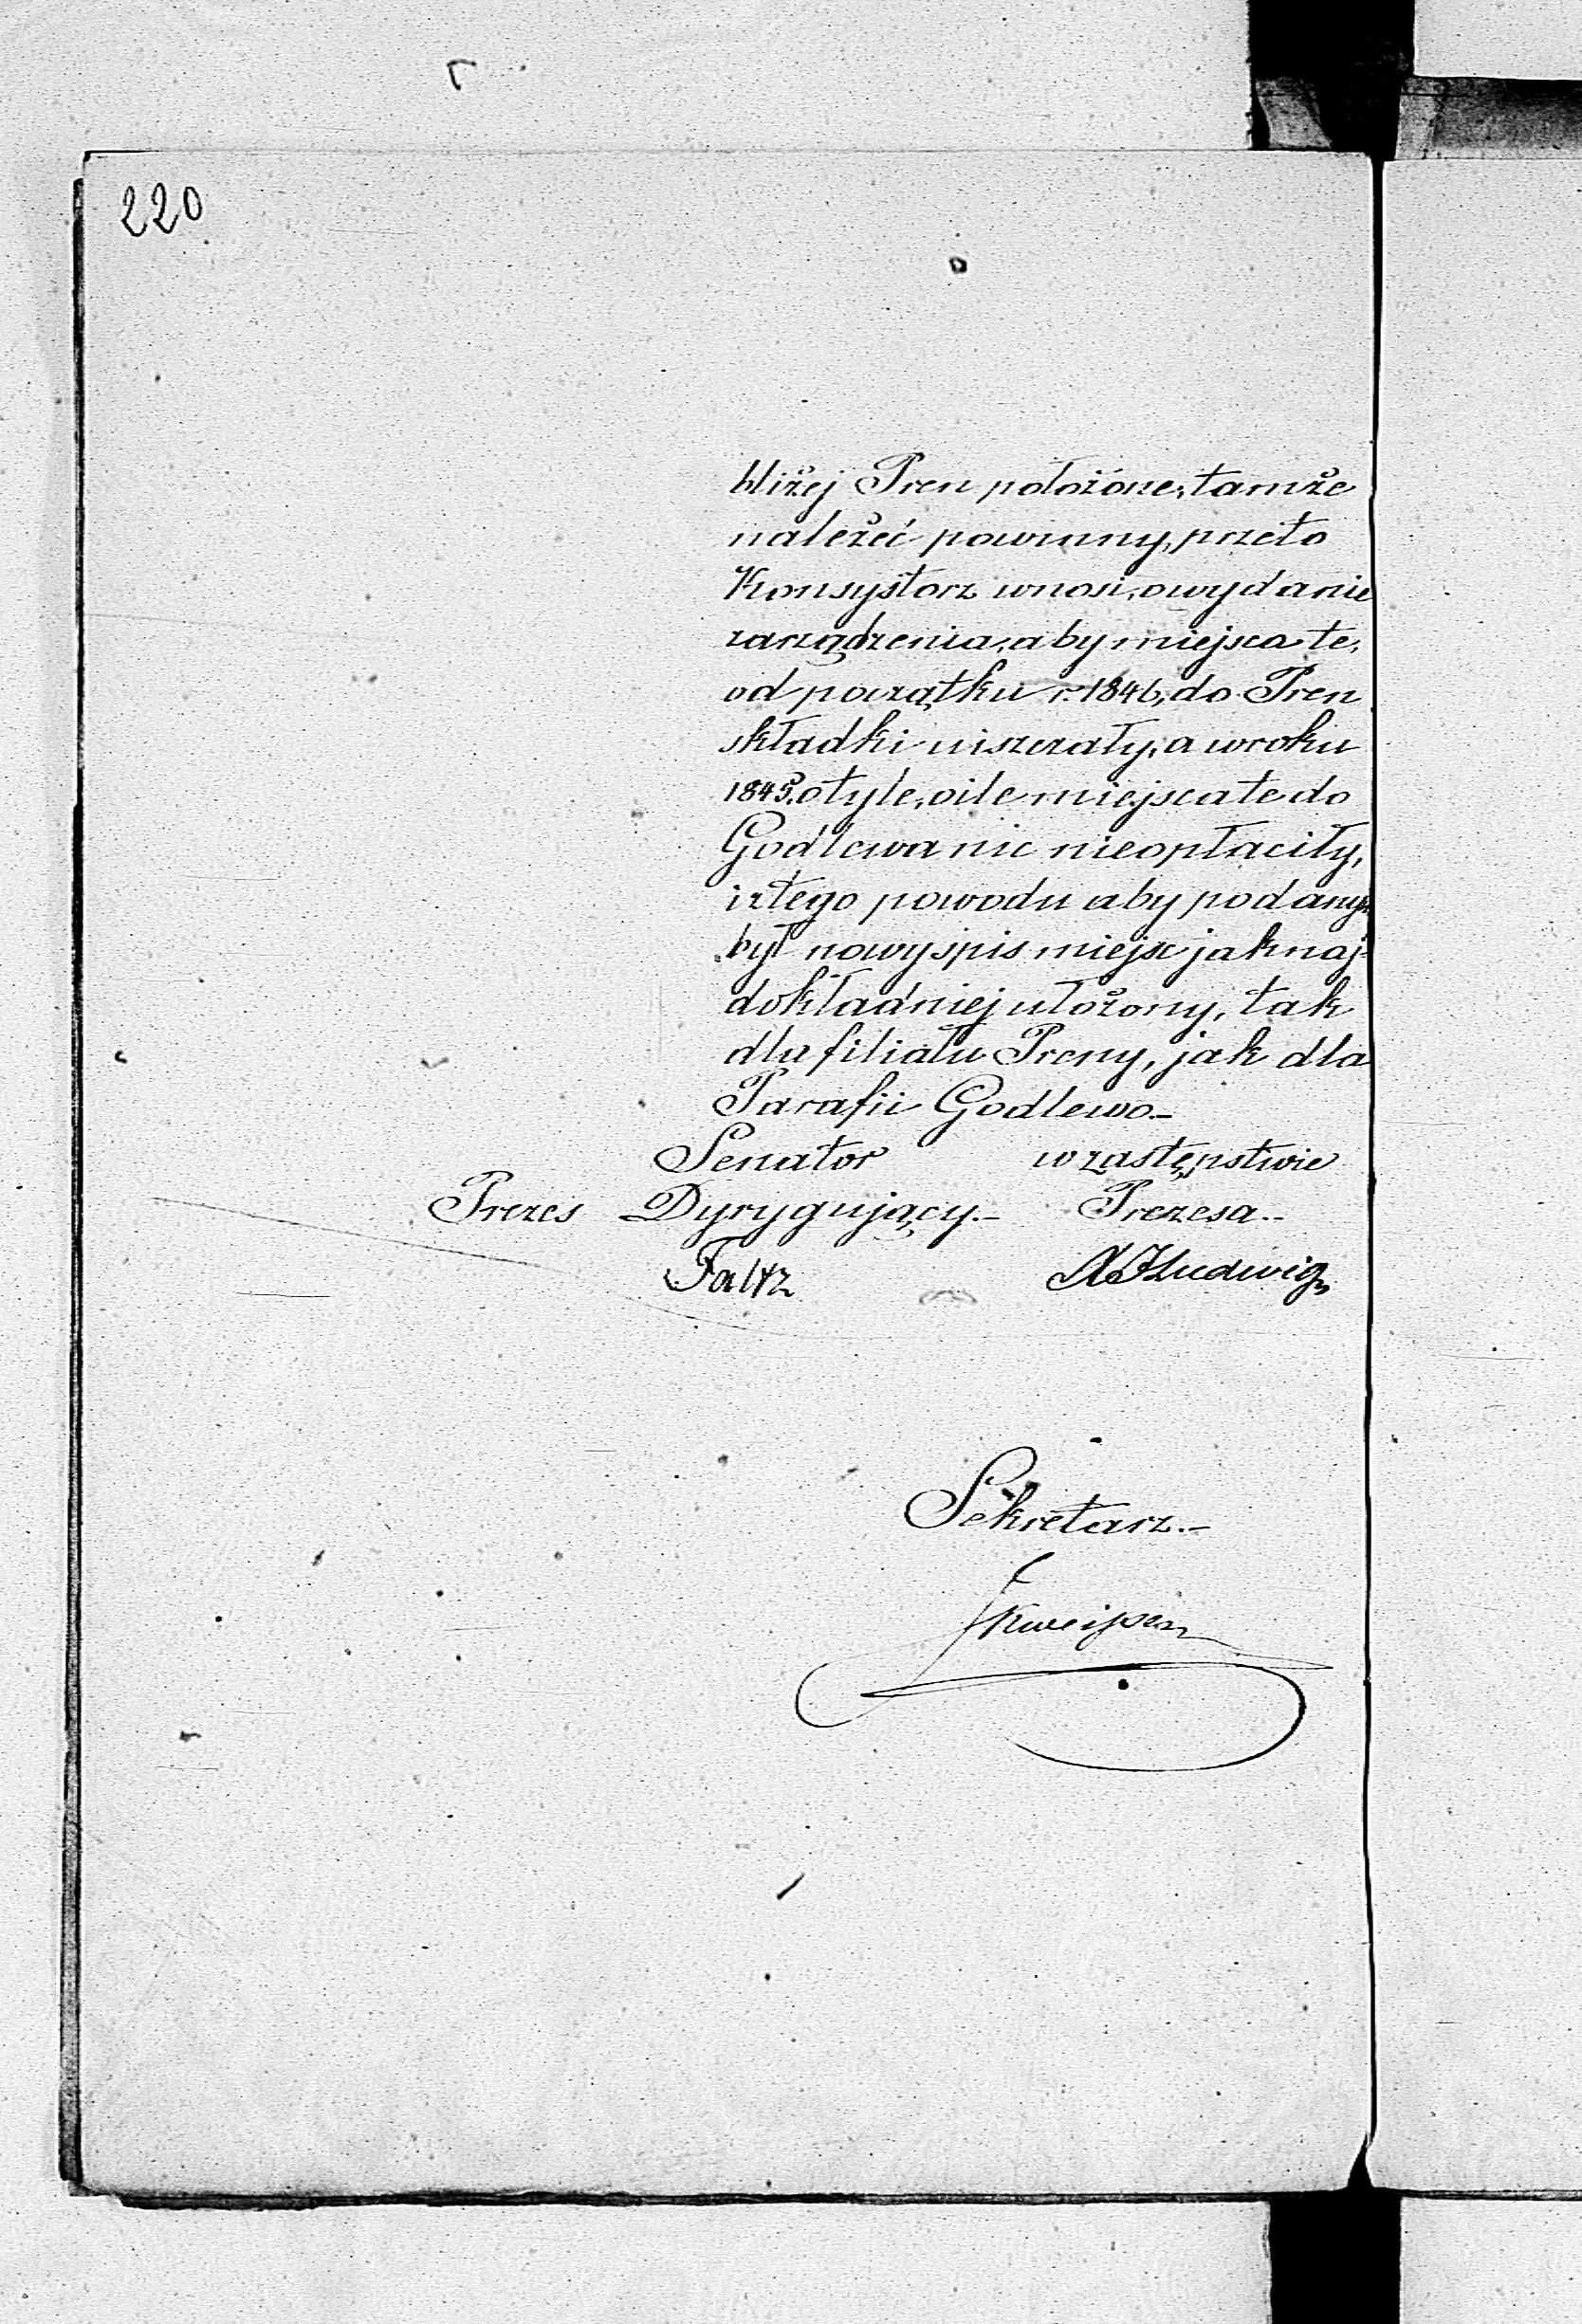 220
bliżej Pren położone, tamże
należeć powinny, przeto
Konsystorz wnosi, o wydanie
zarządzenia, aby miejsca te,
od początku r. 1846, do Pren
składki uiszczały, a w roku
1845, o tyle, o ile miejsca te do
Godlewa nic nieopłaciły,
i z tego powodu aby podany
był nowy spis miejsc jaknaj-
dokładniej ułożony, tak
dla filiału Preny, jak dla
Parafii Godlewo.-
Senator w zastępstwie
Prezes Dyrygujący.- Prezesa.-
Faltz Ludwig
Sekretarz.-